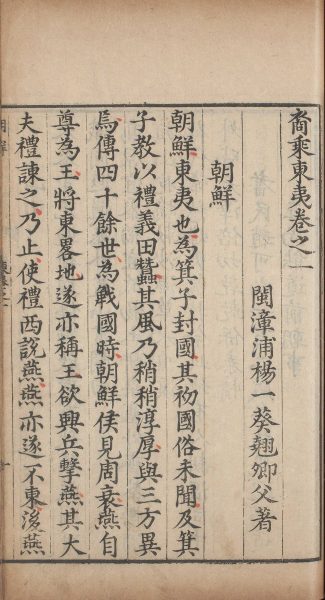 裔乘東夷卷之一
閩漳浦楊一葵翹卿父著
朝鮮
朝鮮東夷也為箕子封國其初國俗未聞及箕
子教以禮義田蠶其風乃稍稍淳厚與三方異
焉傳四十餘世為戰國時朝鮮侯見周衰燕自
尊為王將東畧地遂亦稱王欲興兵擊燕其大
夫禮諫之乃止使禮西說燕燕亦遂不東後燕